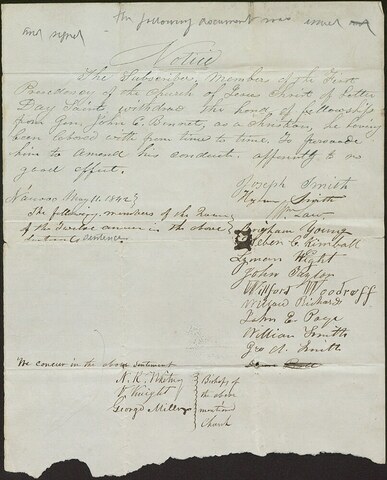 the following document was issued and
and signed
Notice
The Subscribers, Members of the First
Presidency of the Church of Jesus Christ of Latter
Day Saints withdraw the hand of fellowship
from Gen. John C. Bennet, as a christian, he having
been labored with from time to time, to persuade
him to amend his conduct. apparently to no
good effect.
Joseph Smith
Hyrum Smith
Wm Law
Nauvoo May 11, 1842
The following members of the Quorum
of the Twelve concur in the above
sentence
Brigham Young
Heber C Kimball
Lyman Wight
John Taylor
Wilford Woodruff
Willard Richards
John E. Page
William Smith
Geo A. Smith
We concur in the above sentiment
N. K. Whitney
V. Knight
George Miller
Bishops of
the above
mentioned
Church